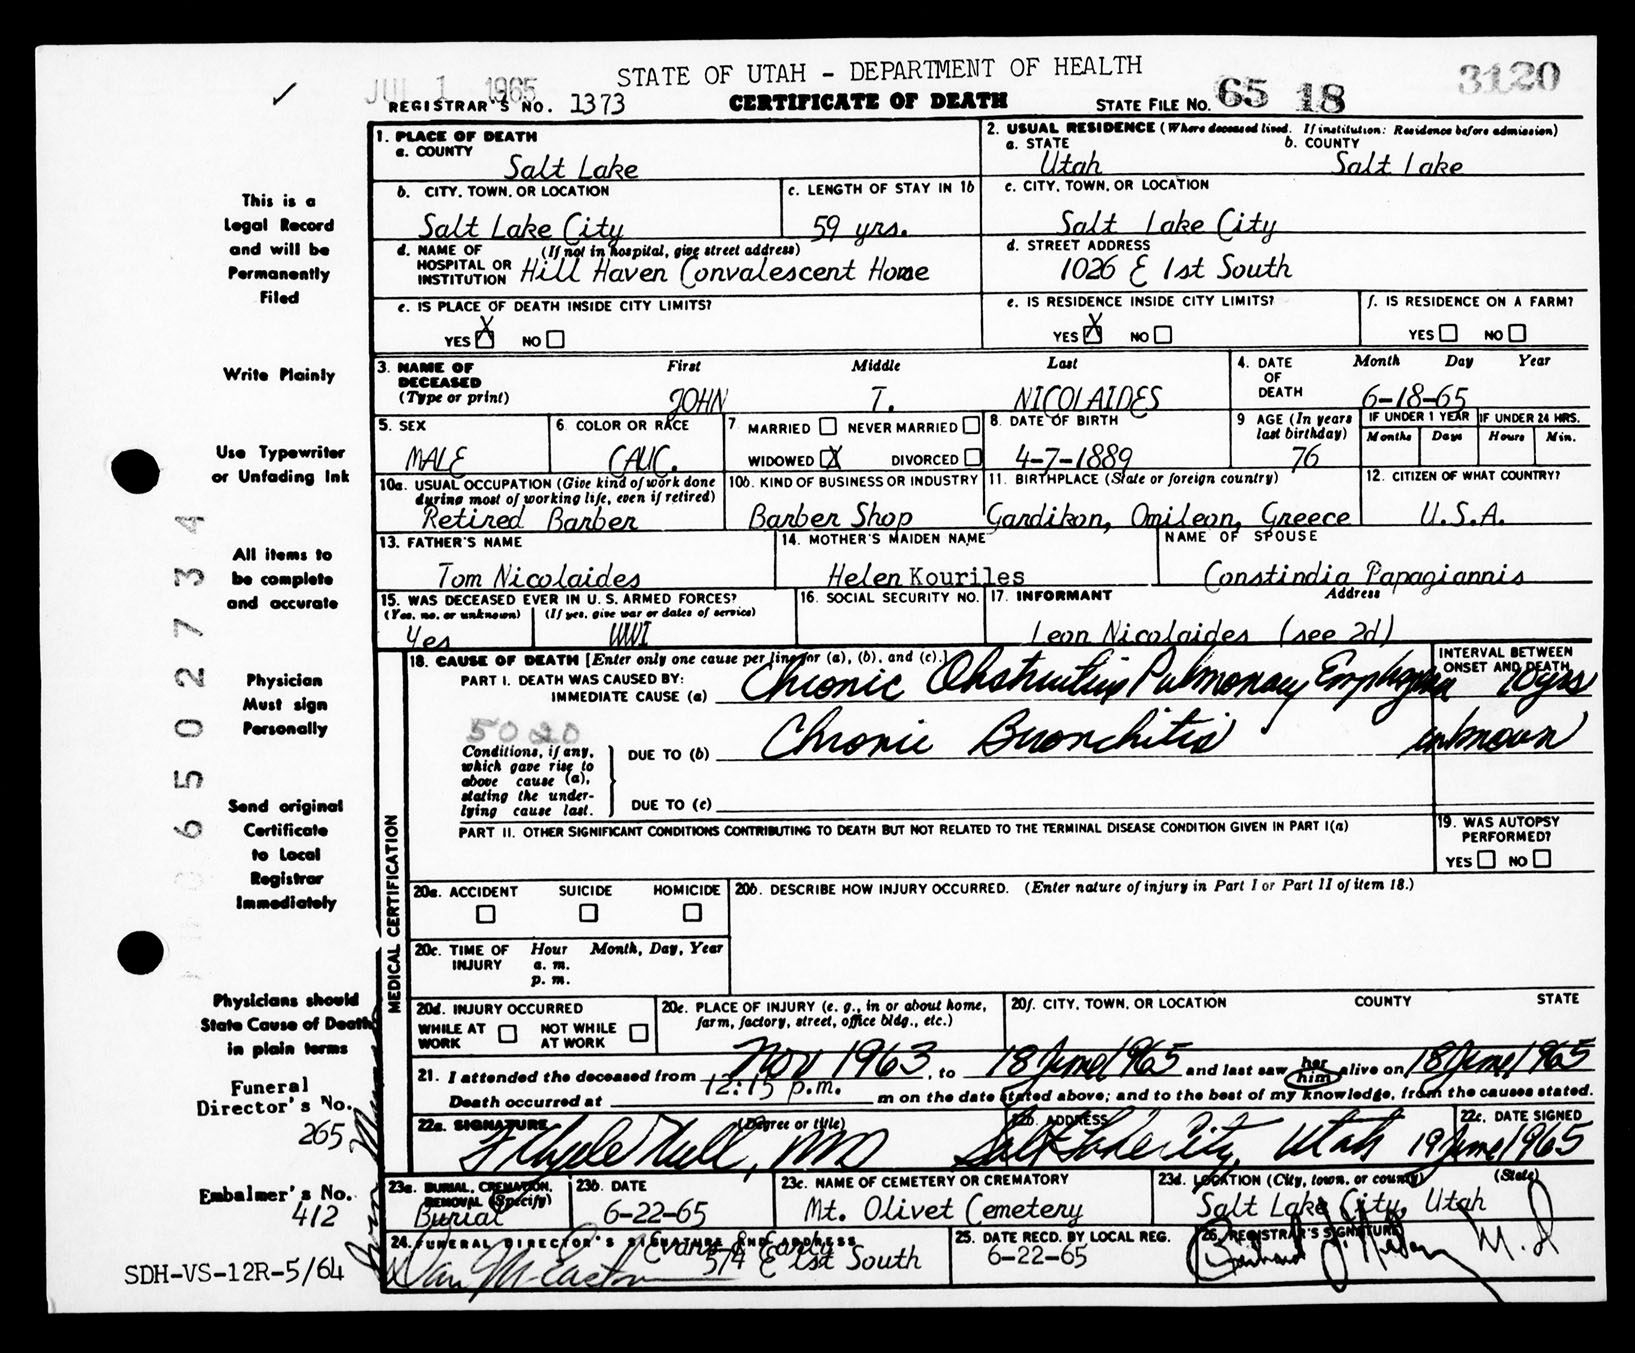 STATE OF UTAH - DEPARTMENT OF HEALTH
JUL 1 1965
3120
REGISTRAR'S NO. 1373 CERTIFICATE OF DEATH STATE FILE NO. 65 18
This is a
Legal Record
and will be
Permanently
Filed
Write Plainly
Use Typewriter
or Unfading Ink
All items to
be complete
and accurate
Physician
Must sign
Personally
Send original
Certificate
to Local
Registrar
Immediately
Physicians should
State Cause of Death
in plain terms
Funeral
Director's No.
265
Embalmer's No.
412
SDH-VS-12R-5/64
1. PLACE OF DEATH
a. COUNTY
Salt Lake
2. USUAL RESIDENCE (Where deceased lived. If institution: Residence before admission)
a. STATE b. COUNTY
Utah Salt Lake
b. CITY, TOWN, OR LOCATION
Salt Lake City
c. LENGTH OF STAY IN 1b
59 yrs.
c. CITY, TOWN, OR LOCATION
Salt Lake City
d. NAME OF (If not in hospital, give street address)
HOSPITAL OR
INSTITUTION Hill Haven Convalescent Home
d. STREET ADDRESS
1026 E 1st South
e. IS PLACE OF DEATH INSIDE CITY LIMITS?
YES X NO
e. IS RESIDENCE INSIDE CITY LIMITS?
YES X NO
f. IS RESIDENCE ON A FARM?
YES NO
3. NAME OF
DECEASED
(Type or print)
First Middle Last
JOHN T. NICOLAIDES
4. DATE
OF
DEATH
Month Day Year
6-18-65
5. SEX
MALE
6. COLOR OR RACE
CAUC.
7. MARRIED NEVER MARRIED
WIDOWED X DIVORCED
8. DATE OF BIRTH
4-7-1889
9 AGE (In years
last birthday)
76
IF UNDER 1 YEAR IF UNDER 24 HRS.
Months Days Hours Min.
10a. USUAL OCCUPATION (Give kind of work done
during most of working life, even if retired)
Retired Barber
10b. KIND OF BUSINESS OR INDUSTRY
Barber Shop
11. BIRTHPLACE (State or foreign country)
Gardikon, Omileon, Greece
12. CITIZEN OF WHAT COUNTRY?
U.S.A.
13. FATHER'S NAME
Tom Nicolaides
14. MOTHER'S MAIDEN NAME
Helen Kouriles
NAME OF SPOUSE
Constindia Papagiannis
15. WAS DECEASED EVER IN U. S. ARMED FORCES?
(Yes, no, or unknown) (If yes, give war or dates of service)
Yes WWI
16. SOCIAL SECURITY NO.
17. INFORMANT Address
Leon Nicolaides (see 2d)
MEDICAL CERTIFICATION
18. CAUSE OF DEATH [Enter only one cause per line for (a), (b), and (c).]
INTERVAL BETWEEN
ONSET AND DEATH
PART I. DEATH WAS CAUSED BY:
IMMEDIATE CAUSE (a) Chronic Obstructive Pulmonary Emphysema 10 yrs
5020
Conditions, if any,
which gave rise to
above cause (a),
stating the under-
lying cause last.
DUE TO (b) Chronic Bronchitis unknown
DUE TO (c)
PART II. OTHER SIGNIFICANT CONDITIONS CONTRIBUTING TO DEATH BUT NOT RELATED TO THE TERMINAL DISEASE CONDITION GIVEN IN PART I(a)
19. WAS AUTOPSY
PERFORMED?
YES NO
20a. ACCIDENT SUICIDE HOMICIDE
20b. DESCRIBE HOW INJURY OCCURRED. (Enter nature of injury in Part I or Part II of item 18.)
20c. TIME OF Hour Month, Day, Year
INJURY a. m.
p. m.
20d. INJURY OCCURRED
WHILE AT NOT WHILE
WORK AT WORK
20e. PLACE OF INJURY (e. g., in or about home,
farm, factory, street, office bldg., etc.)
20f. CITY, TOWN, OR LOCATION COUNTY STATE
21. I attended the deceased from Nov 1963, to 18 June 1965 and last saw her him alive on 18 June 1965
Death occurred at 12:15 p.m. m on the date stated above; and to the best of my knowledge, from the causes stated.
22a. SIGNATURE (Degree or title)
MD
22b. ADDRESS
Salt Lake City, Utah
22c. DATE SIGNED
19 June 1965
23a. BURIAL, CREMATION,
REMOVAL (Specify)
Burial
23b. DATE
6-22-65
23c. NAME OF CEMETERY OR CREMATORY
Mt. Olivet Cemetery
23d. LOCATION (City, town, or county) (State)
Salt Lake City, Utah
24. FUNERAL DIRECTOR'S SIGNATURE AND ADDRESS
Evans & Early
574 E 1st South
25. DATE RECD. BY LOCAL REG.
6-22-65
26. REGISTRAR'S SIGNATURE
M.D